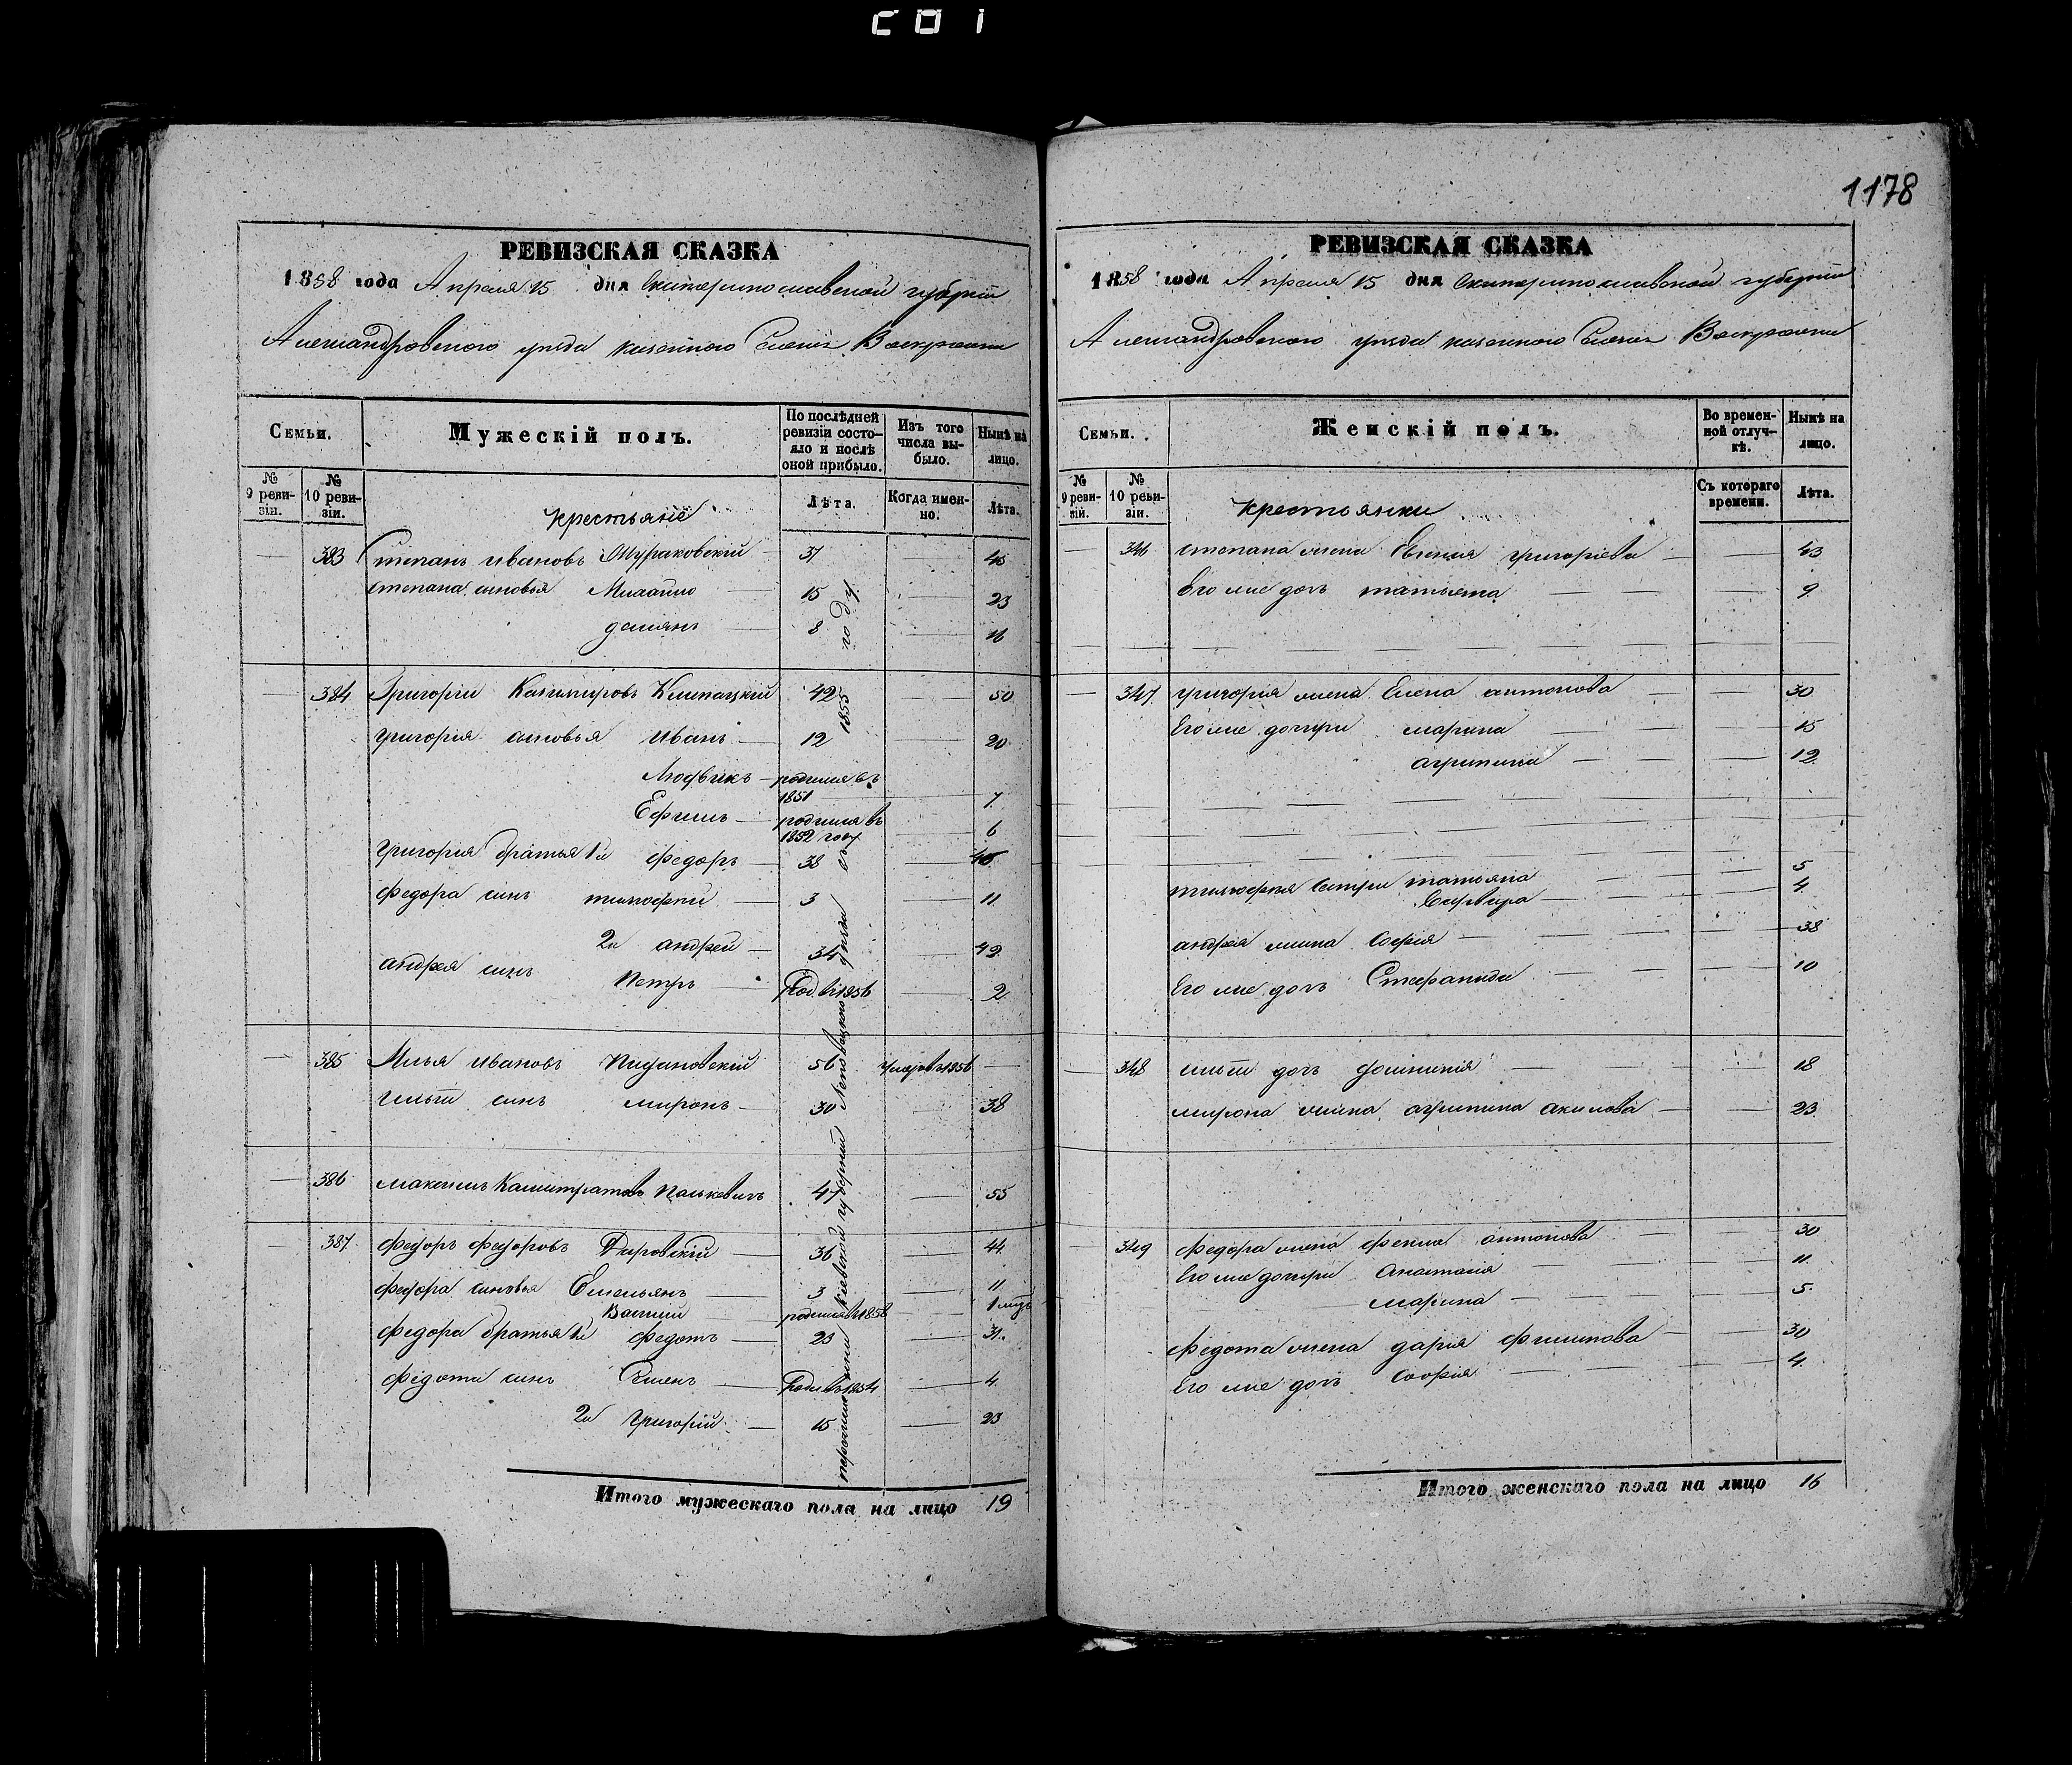 1178
РЕВИЗСКАЯ СКАЗКА
1858 года Апреля 15 дня Екатеринославской губернiи
Александровского уезда казенного Селенiя
Семьи.
Мужескій полъ.
По послѣдней ревизіи состо-яло и послѣ оной прибыло.
Изъ того числа вы-было.
Нынѣ на лицо.
№ 9 реви-зіи.
№ 10 реви-зіи.
крестьяне
Лѣта.
Когда имен-но.
Лѣта.
383 Степанъ ивановъ 37
Степана сыновья Михайло 15 23
демянъ 8 16
384 Григорiй Казимировъ 42 50
григорiя сыновья иванъ 12 20
Людвикъ родился въ 1851 7
Ефимъ родился въ 1852 году 6
григорiя братья 1й федоръ 38
федора сынъ тимофей 3 11
2й андрей 34 42
андрея сынъ Петръ Род. въ 1856 2
385 Илья ивановъ 56 умер въ 1856
ильи сынъ миронъ 30 38
386 максимъ 47 55
387 федоръ федоровъ 36 44
федора сыновья Емельянъ 3 11
Василий родился въ 1858 1 мцъ
федора братья 1й федотъ 23 31
федота сынъ Родил. въ 1854 4
2й григорій 15 23
перечислены Киевской губернiи уезда съ 1855 году
Итого мужескаго пола на лицо 19
РЕВИЗСКАЯ СКАЗКА
1858 года Апреля 15 дня Екатеринославской губернiи
Александровского уезда казенного Селенiя
Семьи.
Женскій полъ.
Во времен-ной отлуч-кѣ.
Нынѣ на лицо.
№ 9 реви-зіи.
№ 10 реви-зіи.
крестьянки
Съ котораго времени.
Лѣта.
346 степана жена григорiева 43
Его же дочь татьяна 9
347 григорiя жена Елена антонова 30
Его же дочери марина 15
агрипина 12
тимофея сестры татьяна 5
4
андрея жена Софiя 38
Его же дочь Стефанида 10
348 ильи дочь 18
мирона жена агрипина акимова 23
349 федора жена фекла антонова 30
Его же дочери Анастасiя 11
марина 5
федота жена дария филипова 30
Его же дочь софiя 4
Итого женскаго пола на лицо 16